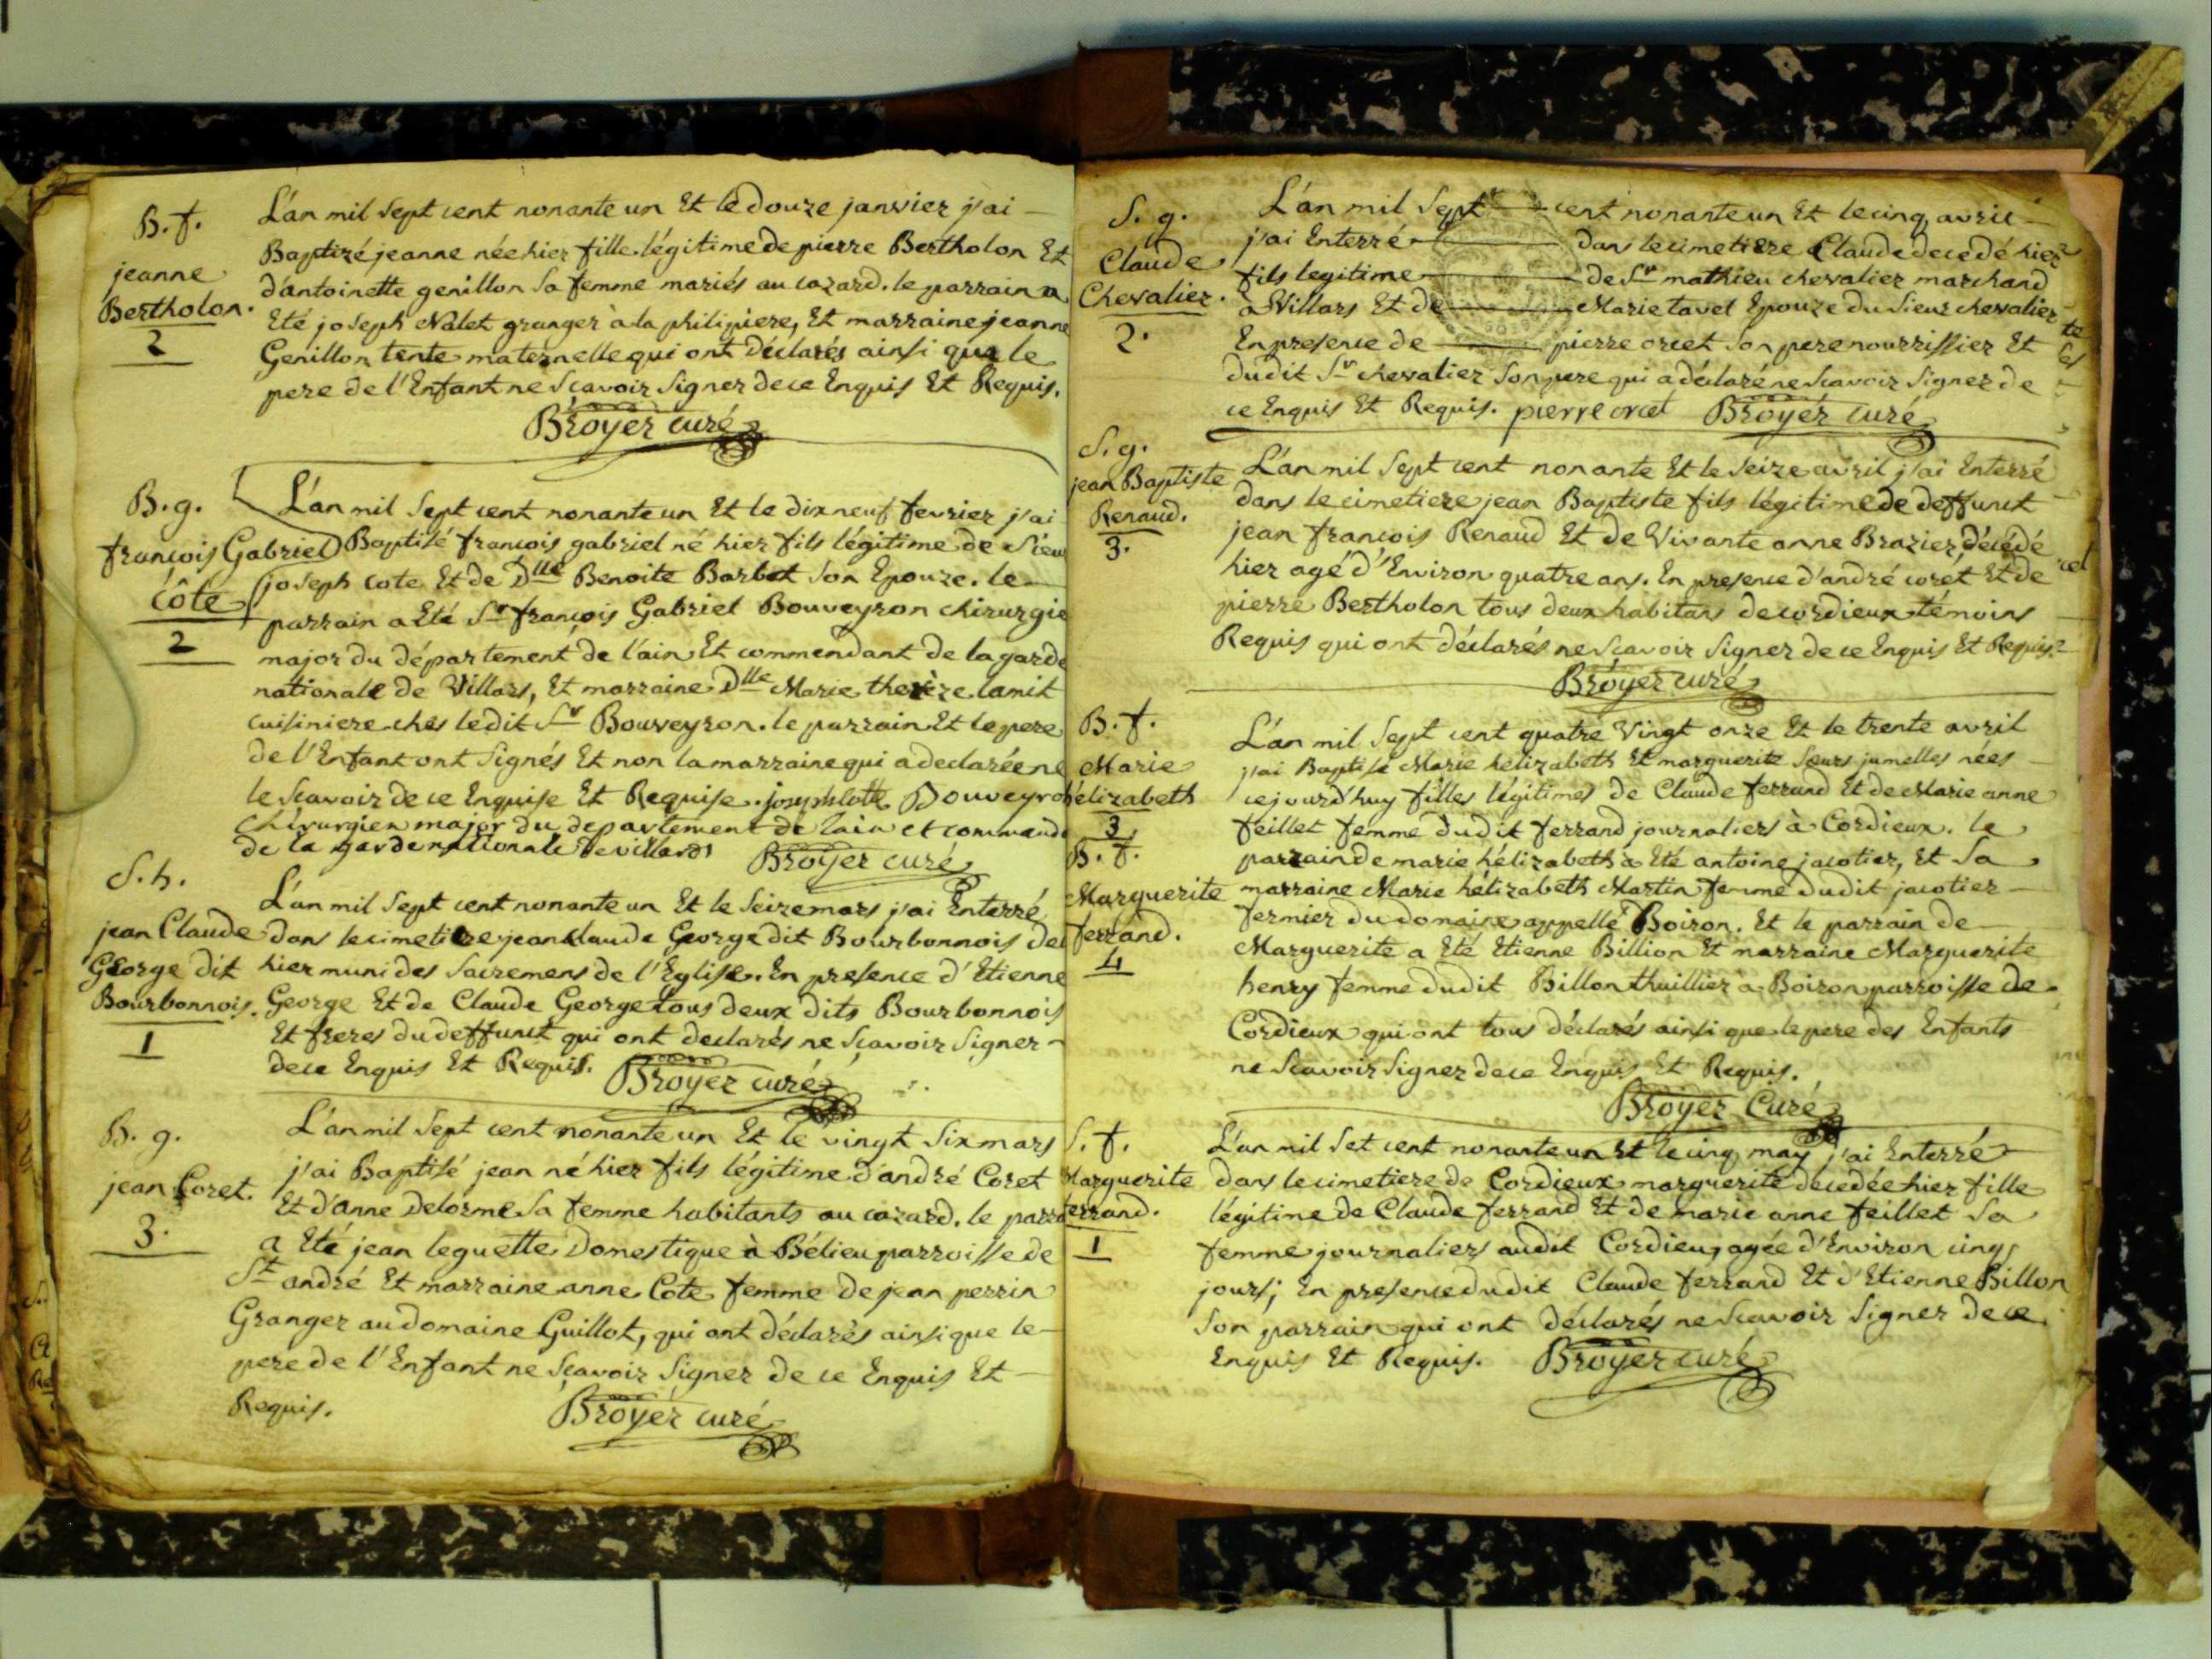 B. f.
jeanne
Bertholon.
2
L'an mil Sept cent nonante un Et le douze janvier j'ai
Baptizé jeanne née hier fille légitime de pierre Bertholon Et
d'antoinette genillon Sa femme mariés au cazard. le parrain a
Eté joseph Nalet granger à la philipiere, Et marraine jeanne
Genillon tente maternelle qui ont déclarés ainsi que le
pere de l'Enfant ne Scavoir Signer de ce Enquis Et Requis.
Broyer curé
B. g.
francois Gabriel
côte
2
L'an mil Sept cent nonante un Et le dix neuf fevrier j'ai
Baptisé francois gabriel né hier fils légitime de Sieur
joseph cote Et de Dlle Benoite Barbet Son Epouze. le
parrain a Eté Sr françois Gabriel Bouveyron chirurgie
major du département de l'ain Et commendant de la garde
nationale de Villars, Et marraine Dlle Marie therèze lamit
cuisiniere chès ledit Sr Bouveyron. le parrain Et le pere
de l'Enfant ont Signés Et non la marraine qui a declarée ne
le Scavoir de ce Enquise Et Requise. joseph Cotte Bouveyron
chirurgien major du departement de lain et commande
de la garde nationale de villars Broyer curé
S. h.
jean Claude
George dit
Bourbonnois.
1
L'an mil Sept cent nonante un Et le Seize mars j'ai Enterré
dans le cimetiere jean claude George dit Bourbonnois de
hier muni des Sacremens de l'Eglise. En presence d'Etienne
George Et de Claude George tous deux dits Bourbonnois
Et freres du deffunct qui ont declarés ne Scavoir Signer
de ce Enquis Et Requis. Broyer curé
B. g.
jean Coret.
3.
L'an mil Sept cent nonante un Et le vingt Six mars
j'ai Baptisé jean né hier fils légitime d'andré Coret
Et d'anne Delorme Sa femme habitants au cazard. le parra
a Eté jean leguette Domestique à Bélieu parroisse de
St andré Et marraine anne Cote femme de jean perrin
Granger au domaine Guillot, qui ont déclarés ainsi que le
pere de l'Enfant ne Scavoir Signer de ce Enquis Et
Requis. Broyer curé
S. g.
Claude
Chevalier.
2.
L'an mil Sept cent nonante un Et le cinq avril
j'ai Enterré dans le cimetiere Claude decedé hier
fils legitime de Sr mathieu chevalier marchand
à Villars Et de Marie tavel Epouze du Sieur chevalier
En presence de pierre orcet Son pere nourrissier Et
dudit Sr chevalier Son pere qui a déclaré ne Scavoir Signer de
ce Enquis Et Requis. pierre orcet Broyer curé
S. g.
jean Baptiste
Renaud.
3.
L'an mil Sept cent nonante Et le Seize avril j'ai Enterré
dans le cimetiere jean Baptiste fils légitime de deffunct
jean francois Renaud Et de Vivante anne Brazier, décédé
hier agé d'Environ quatre ans. En presence d'andré coret Et de
pierre Bertholon tous deux habitans de cordieux témoins
Requis qui ont déclarés ne Scavoir Signer de ce Enquis Et Requis
Broyer curé
B. f.
Marie
hélizabeth
3
B. f.
Marguerite
ferrand.
4
L'an mil Sept cent quatre Vingt onze Et le trente avril
j'ai Baptisé Marie hélizabeth Et marguerite Sœurs jumelles nées
cejourd'huy filles légitimes de Claude ferrand Et de Marie anne
feillet femme dudit ferrand journaliers à Cordieux. le
parrain de marie hélizabeth à Eté antoine jacotier, Et Sa
marraine Marie hélizabeth Martin femme dudit jacotier
fermier du domaine appellé Boiron. Et le parrain de
Marguerite a Eté Etienne Billion Et marraine Marguerite
henry femme dudit Billon thuillier à Boiron parroisse de
Cordieux qui ont tous déclarés ainsi que le pere des Enfants
ne Scavoir Signer de ce Enquis Et Requis.
Broyer Curé
S. f.
Marguerite
ferrand.
1
L'an mil Set cent nonante un Et le cinq may j'ai Enterré
dans le cimetiere de Cordieux marguerite decedée hier fille
légitime de Claude ferrand Et de marie anne feillet Sa
femme journaliers audit Cordieu, agée d'Environ cinq
jours; En presence dudit Claude ferrand Et d'Etienne Billon
Son parrain qui ont déclarés ne Scavoir Signer de ce
Enquis Et Requis. Broyer curé